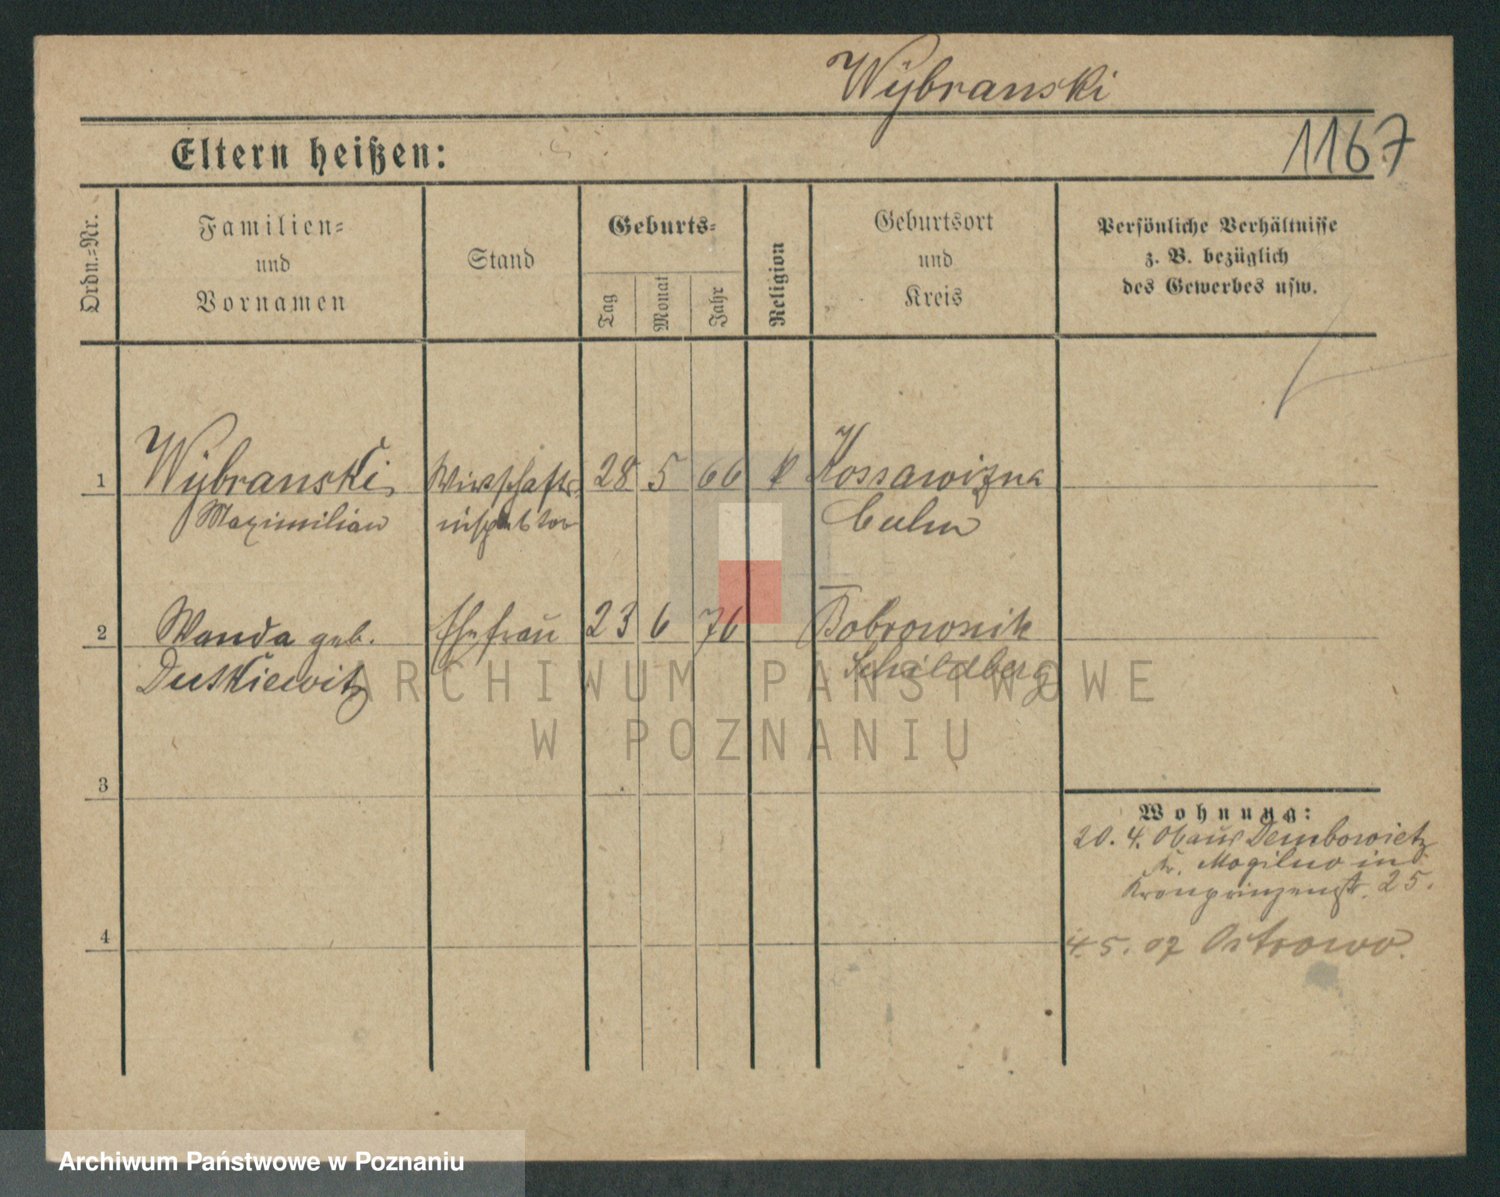 Wÿbranski
1167
Eltern heißen:
Ordn.=Nr.
Familien=
und
Vornamen
Stand
Geburts=
Tag
Monat
Jahr
Religion
Geburtsort
und
Kreis
Persönliche Verhältnisse
z. B. bezüglich
des Gewerbes usw.
1 Wÿbranski, Wirtschafts 28 5 66 k Kossawizna
Maximilian inspektor Culm
2 Wanda geb. Ehefrau 23 6 76 Bobrownik
Dutkiewitz Schildberg
ARCHIWUM PAŃSTWOWE
W POZNANIU
3
Wohnung:
20. 4. 06 aus Dembowietz
Kr. Mogilno in
Kronprinzenstr. 25.
4
4.5.07 Ostrowo.
Archiwum Państwowe w Poznaniu